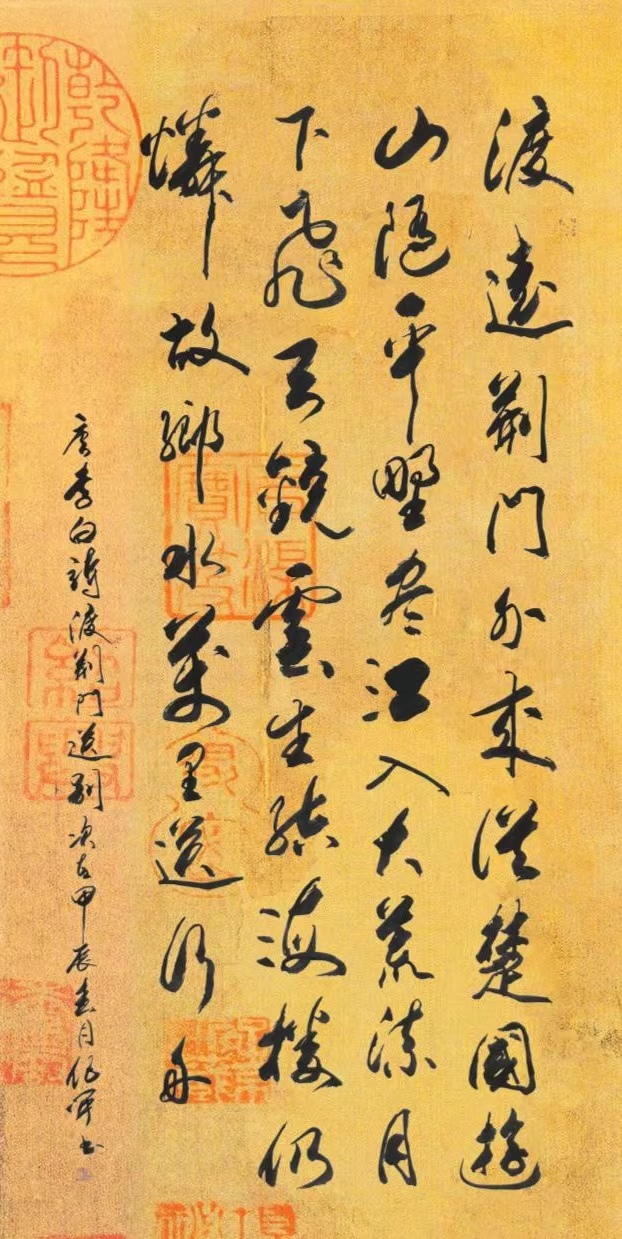 渡遠荆門外來從楚國遊
山随平野尽江入大荒流月
下飛天鏡雲生結海樓仍
憐故鄉水萬里送行舟
唐李白詩渡荆門送別次在甲辰春月書
乾隆